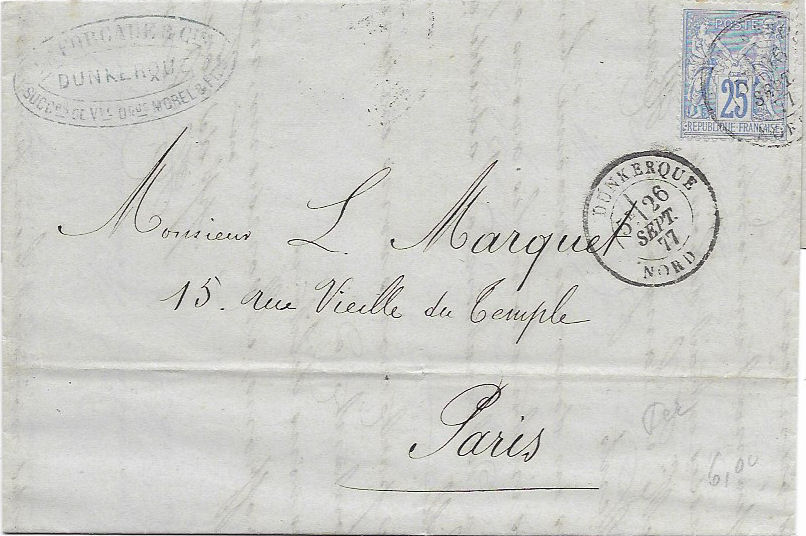 FORCADE & CIE
DUNKERQUE
SUCCRS DE VVE MOREL & FILS
POSTE
25
REPUBLIQUE FRANÇAISE
SEPT.
DUNKERQUE
26
SEPT.
77
NORD
Monsieur L. Marquet
15. rue Vieille du Temple
Paris
6,00